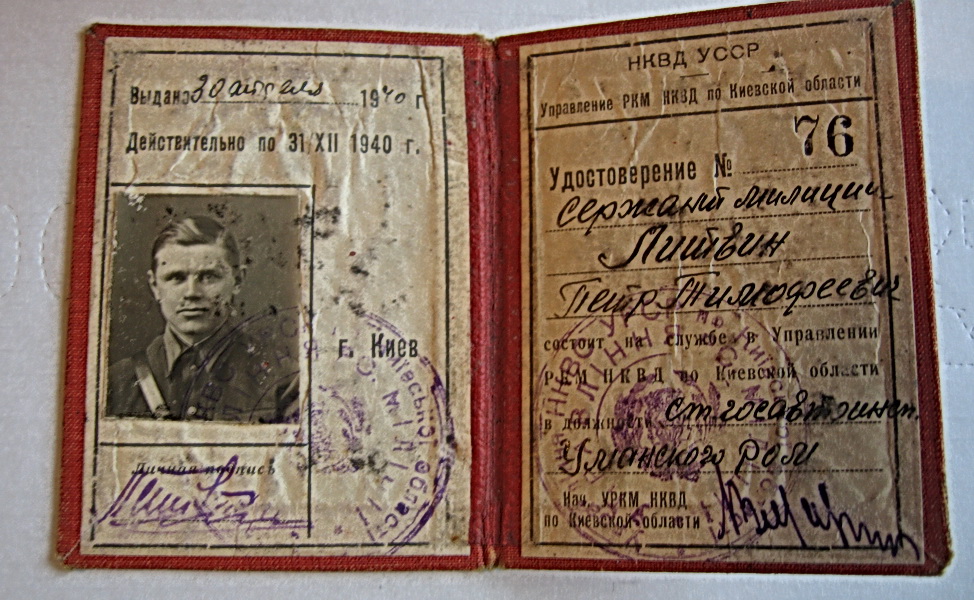 Выдано 30 апреля 1940 г.
Действительно по 31/XII 1940 г.
г. Киев
Личная подпись
НКВД УССР
Управление РКМ НКВД по Киевской области
Удостоверение № 76
Сержант милиции
Литвин
Петр Тимофеевич
состоит на службе в Управлении
РКМ НКВД по Киевской области
в должности ст. госавтоинсп.
Уманского РОМ
Нач. УРКМ НКВД
по Киевской области